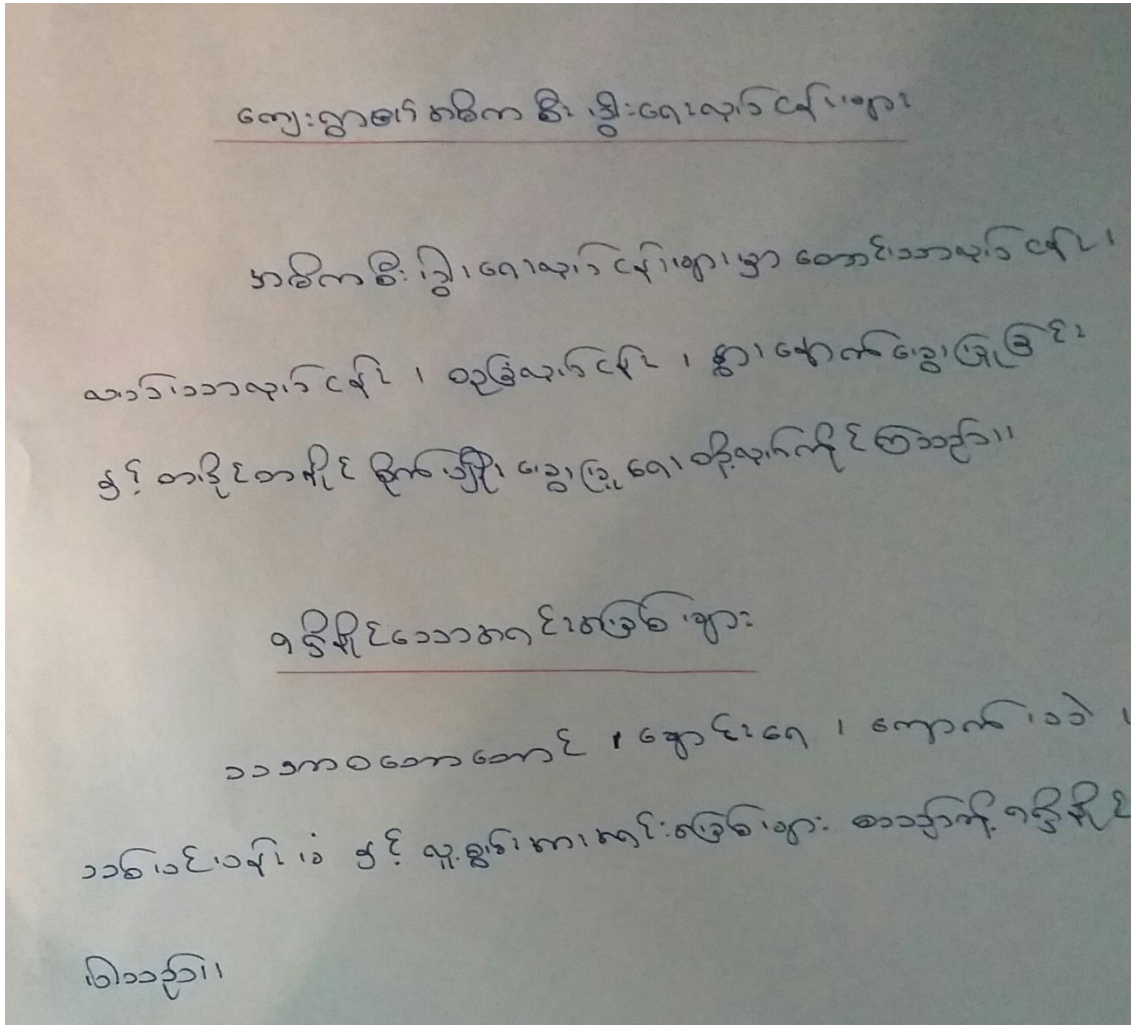 ကျေးရွာ၏ အဓိက စီးပွားရေးလုပ်ငန်းများ
အဓိက စီးပွားရေးလုပ်ငန်းများမှာ တောင်သာလုပ်ငန်း၊
ယာသာလုပ်ငန်း၊ ဥယျာဉ်ခြံလုပ်ငန်း၊ နွား နောက်မွေးမြူခြင်း
နှင့် တစ်နိုင်တစ်ပိုင် စိုက်ပျိုး မွေးမြူရေး တို့လုပ်ကိုင်ကြသည်။
ရရှိနိုင်သော အရင်းအမြစ်များ
သဘာဝတောတောင်၊ ချောင်းရေ၊ ကျောက်၊ သဲ၊
သစ်ပင်ပန်းမံ နှင့် လူ့စွမ်းအားအရင်းအမြစ်များ စသည်တို့ ရရှိနိုင်
ပါသည်။